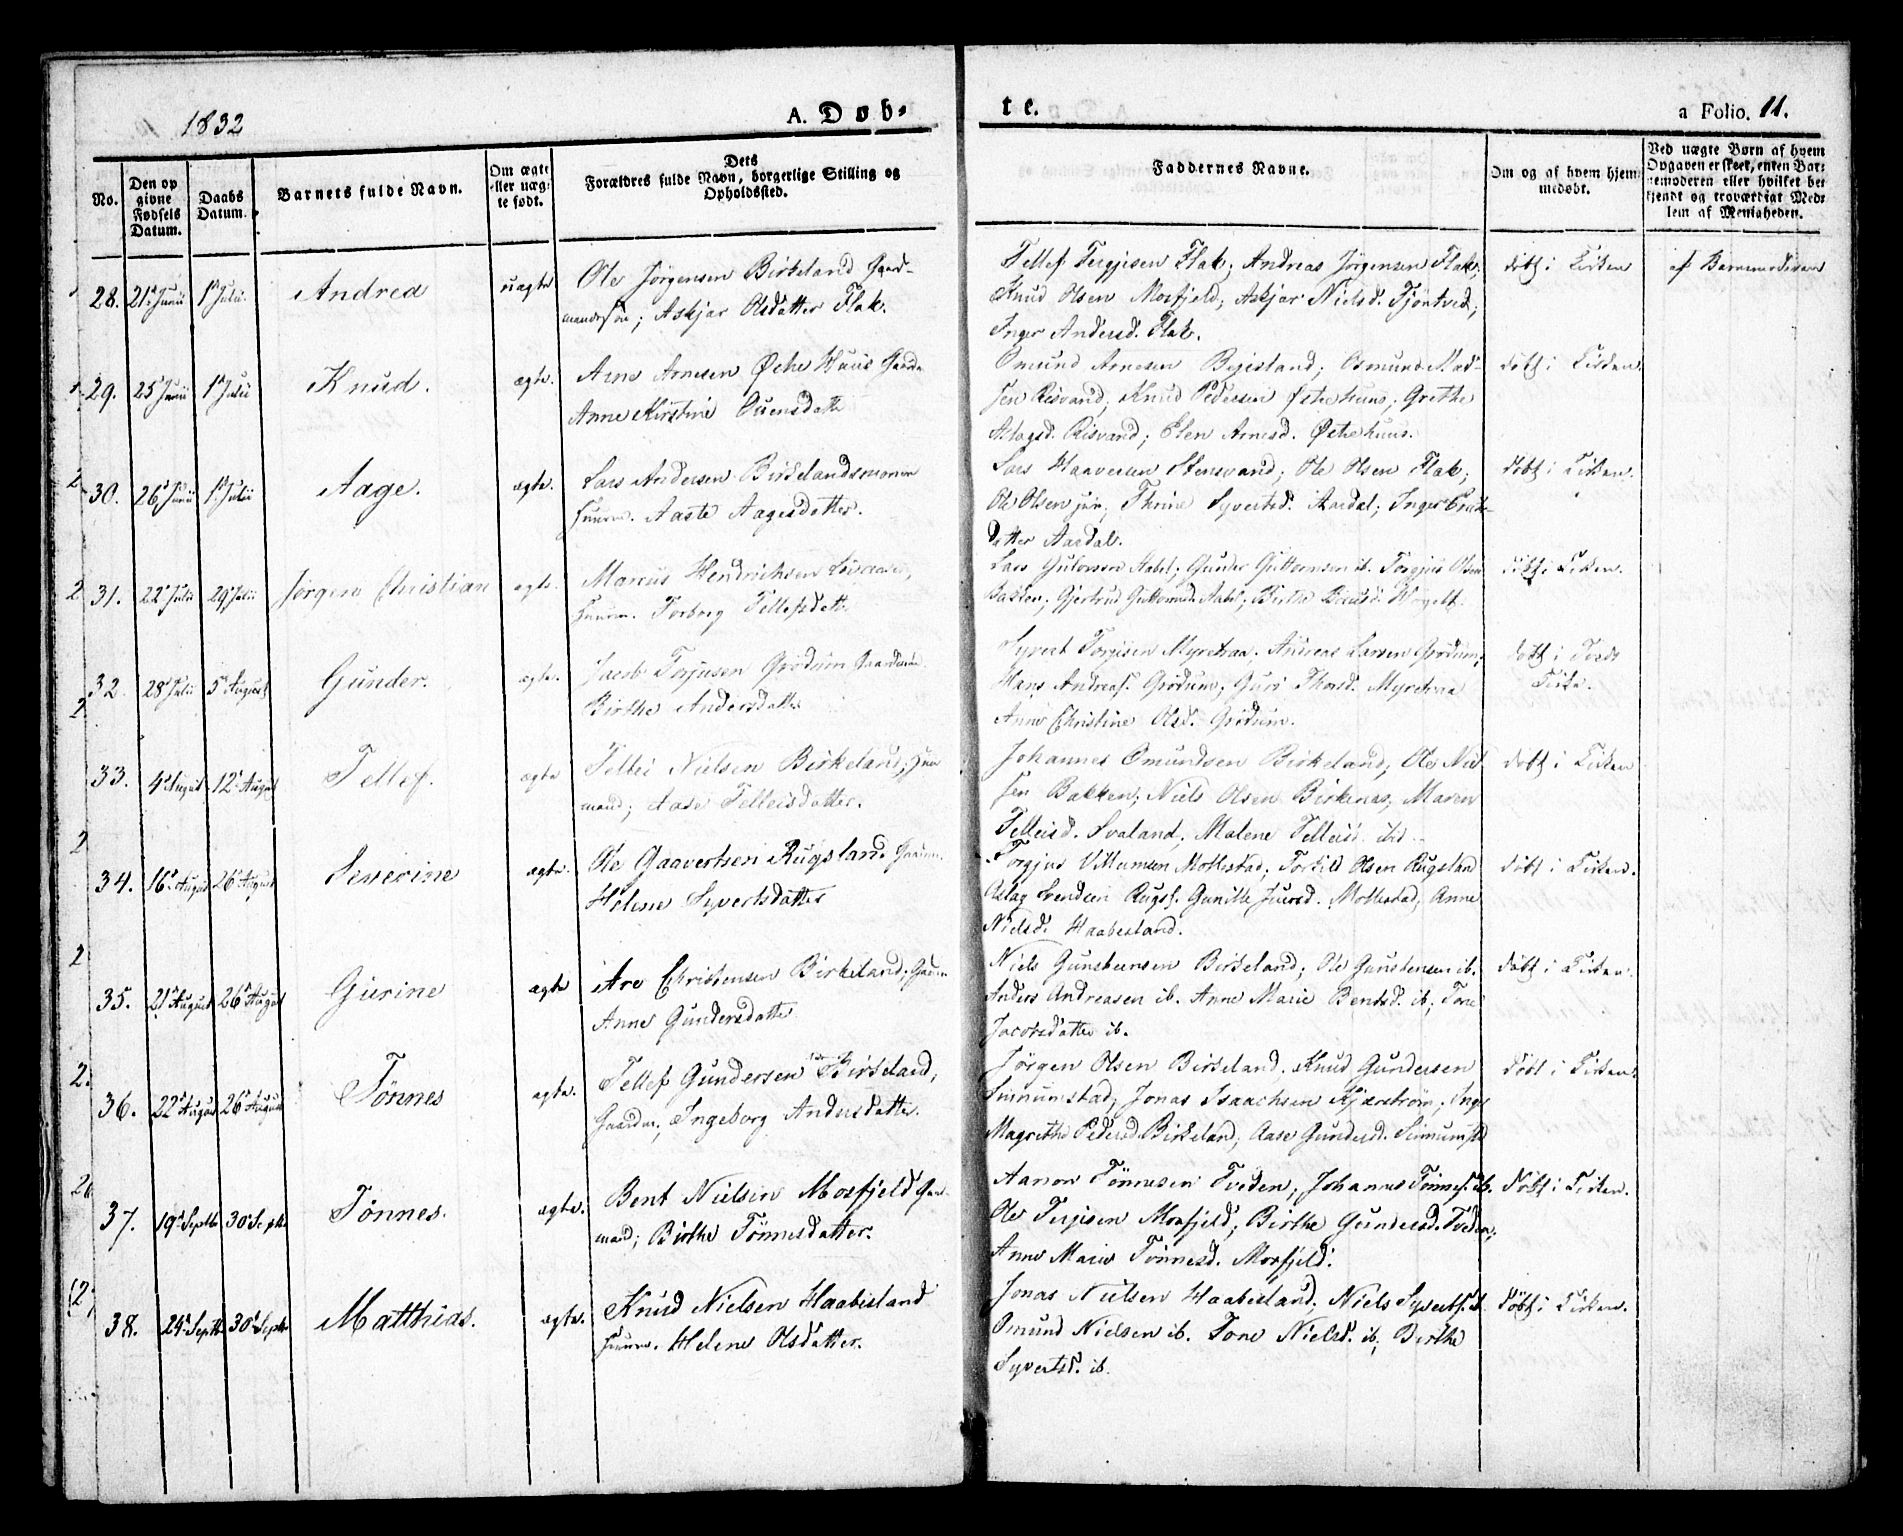 1832
A. Døb-
te.
a Folio. 11.
No.
Den op
givne
Fødsels
Datum.
Daabs
Datum.
Barnets fulde Navn.
Om ægte
eller uæg-
te født.
Dets
Forældres fulde Navn, borgerlige Stilling og
Opholdssted.
Faddernes Navne.
Om og af hvem hjem-
medøbt.
Ved uægte Børn af hvem
Opgaven er skeet, enten Bar-
nemoderen eller hvilket be-
kjendt og troværdigt Med-
lem af Menigheden.
28. 21 Junii 1 Julii. Andrea uægte Ole Jørgensen Birkeland Gaard-
mandssøn; Askjær Olsdatter Flak.
Tellef Tergjesen Flak; Andreas Jørgensen Flak.
Knud Olsen Mosfjeld; Askjær Nielsd. Tjøntved;
Inger Andersd. Flak.
døbt i Kirken af Barnemoderen
29. 25 Junii 1 Julii Knud. ægte. Arne Arnesen Østre Huus Gaardm
Anne Kirstine Ouensdatte
Omund Arnesen Bejesland; Osmund Mad-
sen Risvand; Knud Pedersen Østrehuus; Grethe
Aslagsd. Risvand; Elen Arnesd. Østrehuus.
døbt i Kirken
30. 26 Junii 1 Julii Aage. ægte. Lars Andersen Birkelandsmonen
Huusm. Aaste Aagesdatter.
Lars Haaversen Stensvand; Ole Olsen Flak;
Ole Olsen jun; Thrine Syvertsd. Aardal; Inger
datter Aardal.
døbt i Kirken.
31. 22 Julii 29 Julii Jørgen Christian ægte. Marcus Hendrichsen
Huusm. Torborg Tellefsdatt.
Lars Gulovsen Aabel; Gunder Guttormsen ib. Torgjus Olsen
Bakken; Gjertrud Guttormsd. Aabel; Berthe
døbt i Kirken.
32. 28 Julii 5 August Gunder. ægte. Jacob Terjusen Grødum Gaardmand
Birthe Andersdatter
Syvert Torgjsen Myretraa; Andreas Larsen Grødum,
Hans Andreas. Grødum; Guro Thorsd. Myretraa
Anne Christine Olsd. Grødum.
døbt i
Kirke.
33. 4 August 12 August Tellef. ægte Tellei Nielsen Birkeland; Huus
mand; Aase Telleisdatter.
Johannes Omundsen Birkeland; Ole Niel
sen Bakken; Niels Olsen Birkenes; Maren
Telleisd. Svaland; Malene Telleisd. ibid.
døbt i Kirken
34. 16 August 26 August Severine ægte. Ole Gaavertsen Rugsland Gaardm.
Helene Syvertsdatter
Torgjus Villumsen Mollestad; Torkild Olsen Rugsland
Aslag Svendsen Rugsl. Gunille Juersd. Mollestad; Anne
Nielsd. Haabesland.
døbt i Kirken.
35. 21 August 26 August Gurine ægte Are Christensen Birkeland; Gaardm
Anne Gundersdatter
Niels Gunsteensen Birkeland; Ole Gunstensen ib.
Anders Andreasen ib. Anne Marie Bentsd. ib; Tone
Jacobsdatter ib.
døbt i Kirken.
36. 22 August 26 August Tønnes ægte. Tellef Gundersen Birkeland,
Gaardm., Ingeborg Andersdatter.
Jørgen Olsen Birkeland. Knud Gundersen
Sennumstad; Jonas Isaachsen Kjærstrøm; Inger
Magrethe Pedersd. Birkeland; Aase Gundersd. Sennumstd
døbt i Kirken.
37. 19 Septbr 30 Septbr Tønnes. ægte. Bent Nielsen Mosfjeld Gaar-
mand; Birthe Tønnesdatter.
Aanon Tønnesen Tveden; Johannes Tønnes. ib.
Ole Terjesen Mosfjeld; Birthe Gundersd. Tveden,
Anne Marie Tønnesd. Mosfjeld.
døbt i Kirken.
38. 24 Septbr 30 Septbr Matthias. ægte. Knud Nielsen Haabesland
Huusm. Helene Olsdatter.
Jonas Nielsen Haabesland; Niels Syverts. ib
Omund Nielsen ib. Tone Nielsd. ib; Birthe
Syvertsd. ib.
døbt i Kirken.